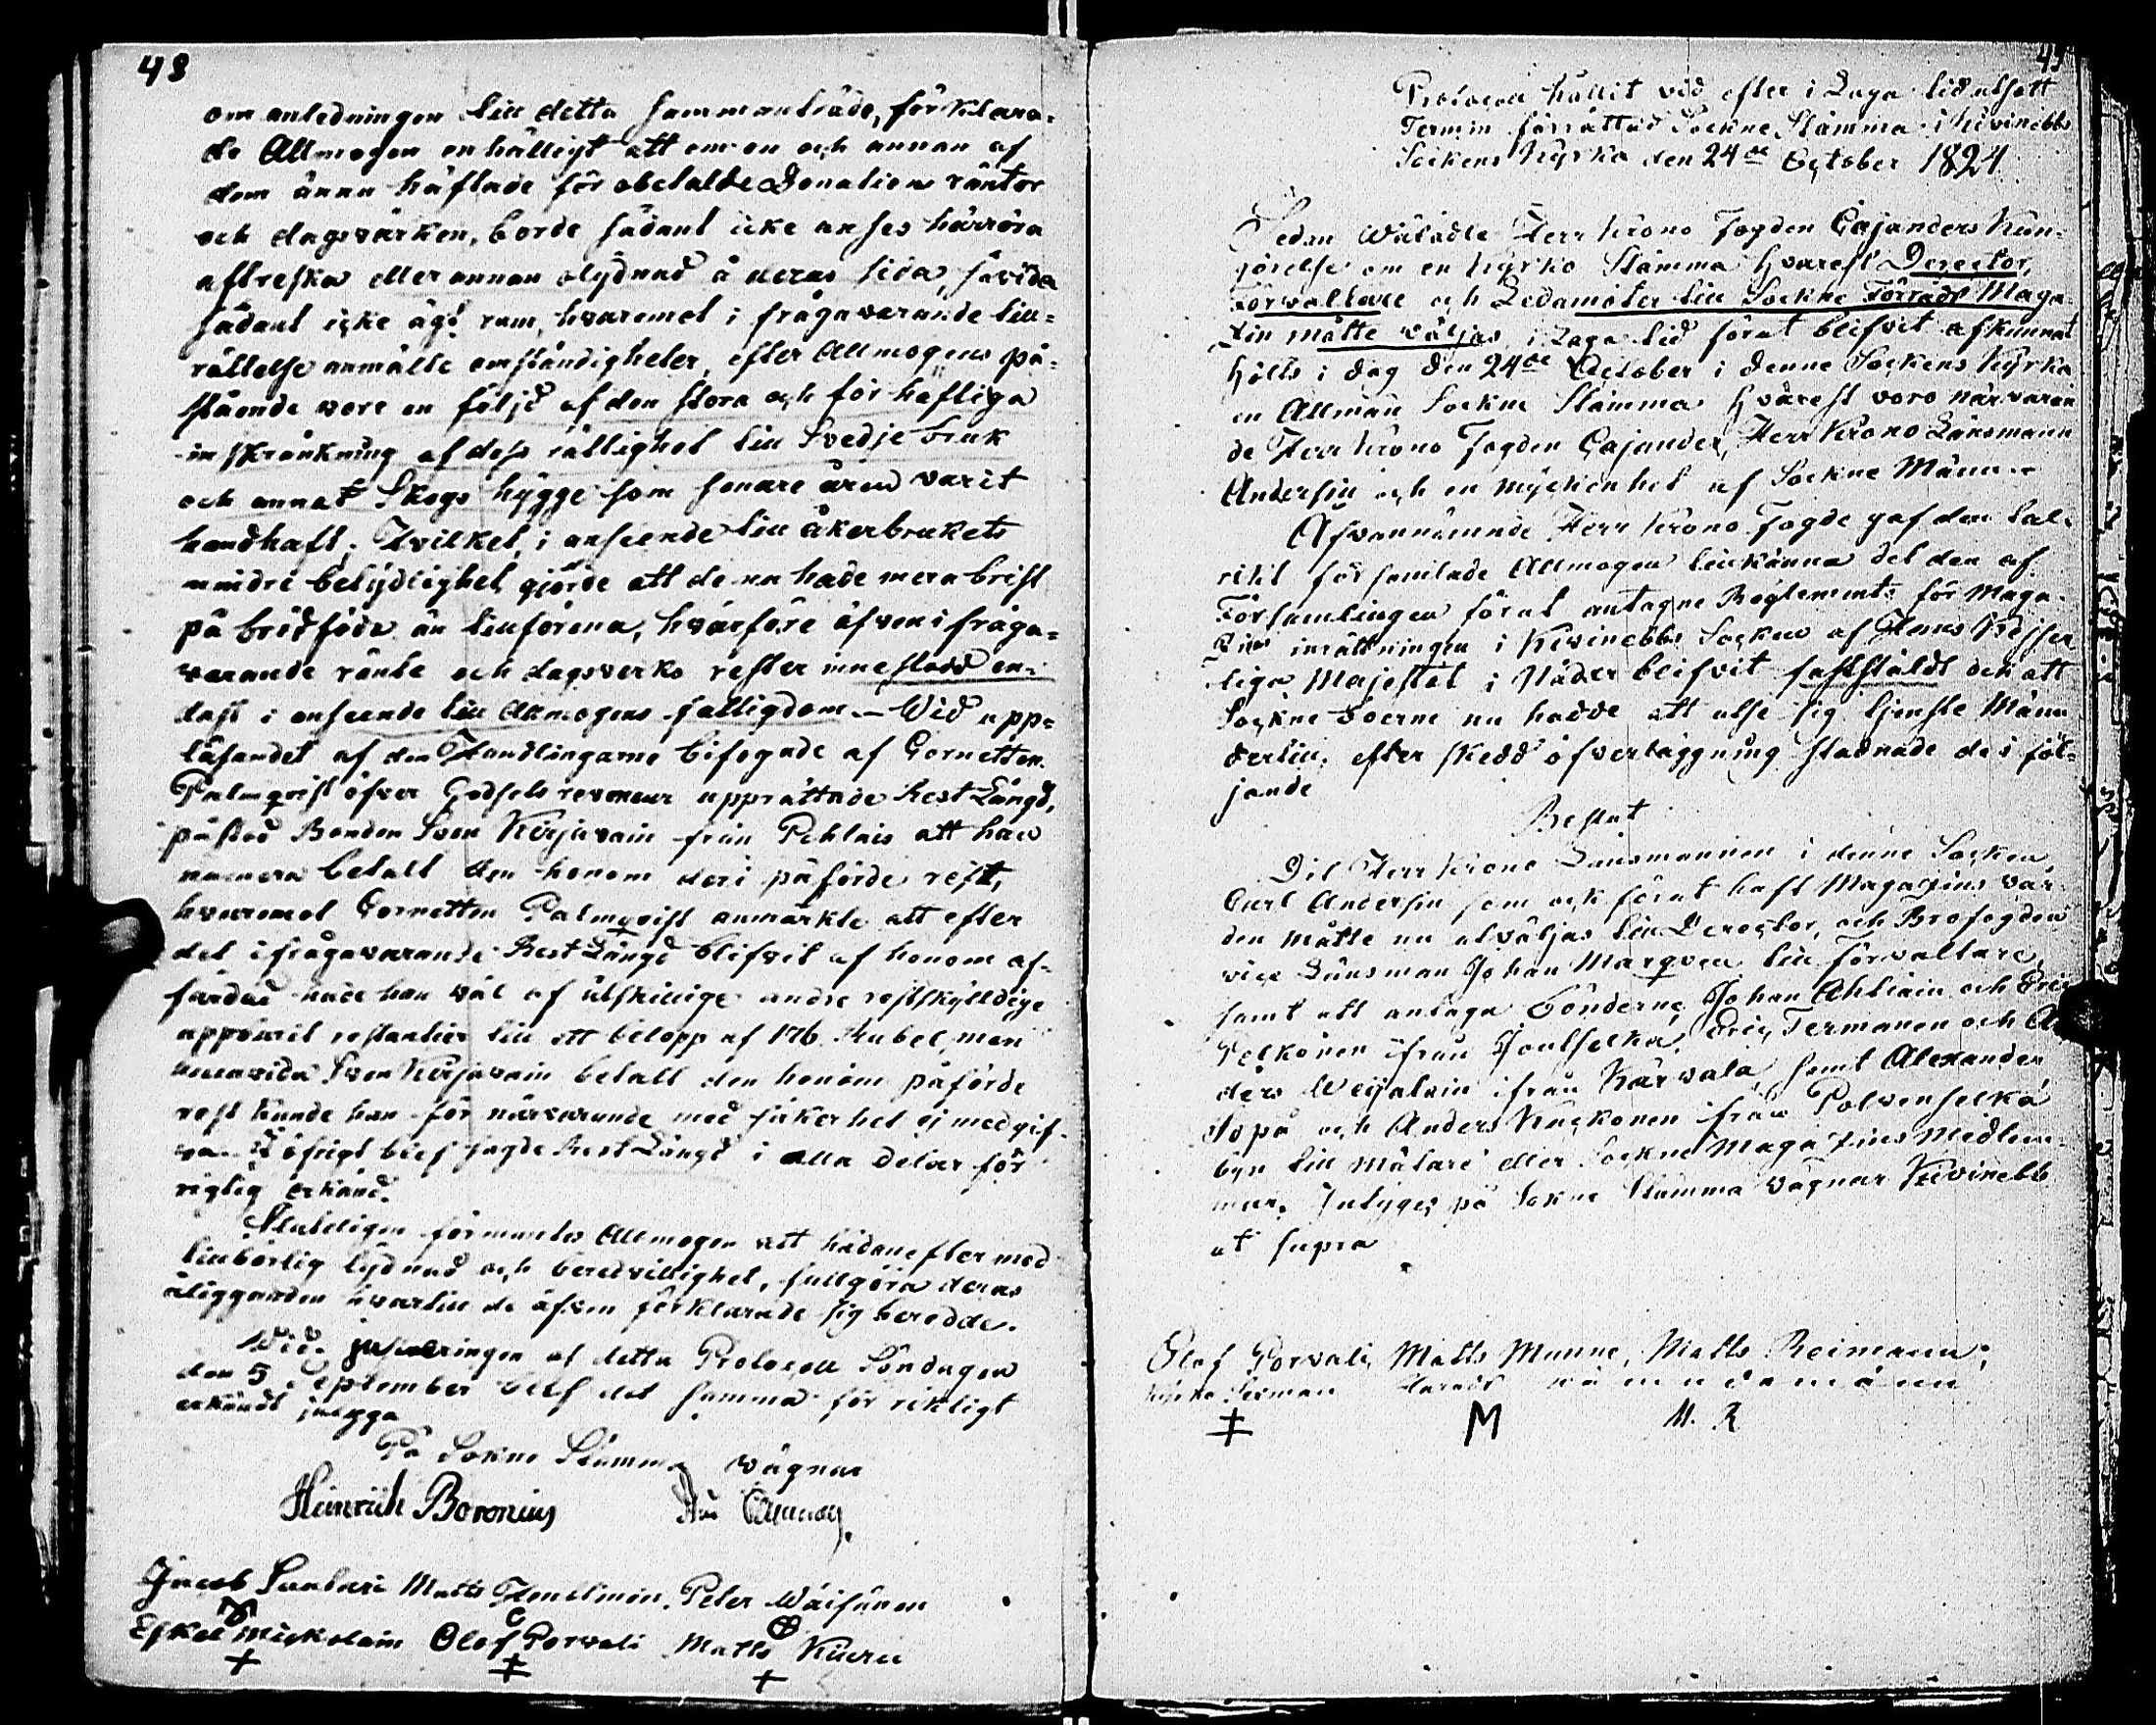 48
om anledningen till detta sammanträde, förklara-
de Allmogen enhälligt att om en och annan af
dem ännu häftade för obetalde Donations räntor
och dagsvärken, borde sådant icke anses härröra
af treska eller annan olydnad å deras sida, såvida
sådant icke ägt rum, hvaremot i fråga varande till-
rättelse anmälte omständigheter, efter Allmogens på-
stående vore en följd af den stora och för häftiga
inskränkning af dess rättighet till Svedjebruk
och annat Skogs hygge som senare åren varit
handhaft; Hvilket, i anseende till åkerbrukets
mindre betydlighet gjorde att de nu hade mera brist
på brödföda än tillförena, hvarföre äfven i fråga-
varande ränte och dagsverks rester innestodd en-
dast i anseende till Allmogens fattigdom. - Vid upp-
läsandet af den Handlingarne bifogade af Cornetten
Palmqvist öfver Godsets revenuer upprättade Rest Längd,
påstod Bonden Sven Kirjavain från Pihlais att hav
numera betalt den honom deri påförde rest,
hvaremot Cornetten Palmqvist anmärkte att efter
det ifrågavarande Rest Längd blifvit af honom af-
färdad hade han väl af ütskillige andre restskylldige
uppburit restantier till ett belopp af 176 Rubel, men
huruvida Sven Kirjavain betalt den honom påförde
rest kunde han för närvarande med säkerhet ej medgif-
va. I öfrigt blef sagde Rest Längd i alla delar för
rigtig erkänd.
Slutligen förmantes Allmogen att hädanefter med
tillbörlig lydnad och beredvillighet, fullgöra deras
åligganden hvartill de äfven förklarade sig beredde.
Vid justeringen af detta Protocoll Söndagen
den 5 September blef det samma för riktigt
erkändt intyga
På Sokne Stämmo vägnar
Heinrich Boronius
Jacob Suntari Matts Hendtinen, Peter Wäisänen
Eskel Mickolain Olof Porvali Matts Kiuru
Protocoll hållit vid efter i Laga tid utsatt
Termin förrättad Sockne Stämma i Kivinebbs
Sockens Kyrka den 24de October 1824
Sedan Wälädle Herr Krono Fogden Cajanders Kun-
görelse om en Kyrko Stämma hvarest Derector,
Förvaltare och Ledamöter till Sockne Förråds Maga-
zin måtte väljas, i Laga tid förut blifvit afkunnat
hölts i dag den 24de October i denne Sockens Kyrka
en Allmän Sockne Stämma hvarest voro närvaran
de Herr Krono Fogden Cajander, Herr Krono Länsmann
Andersin och en myckenhet af Sockne Männ.-
Ofvannämnde Herr Krono Fogde gaf den tal-
rikt församlade Allmogen tillkänna det den af
Församlingen förut antagne Reglemente för Maga-
zins inrättningen i Kivinebbs Socken af Hans Kejser
liga Majestät i Nåder blifvit fastställdt och att
Sockne boerne nu hadde att utse sig tjenste Männ
dertill, efter skedd öfverläggning stadnade de i föl-
jande
Beslut
Dit Herr Krono Länsmannen i denne Socken
Carl Andersin som ock förut haft Magazins vår-
den måtte nu utväljas till Derector, och Brofogden
vice Länsman Johan Marqven till förvaltare,
samt att antaga bönderne Johan Ahtiain och Eric
Pelkonen ifrån Joutselkä, Eric Termanen och A
ders Weijalain ifrån Kärvala samt Alexander
Jopå och Anders Kuckonen ifrån Polvenselkä
byn till mätare eller Sockne Magazins Medlem-
mar. Intyger på Sokne Stämmo vägnar Kivinebb
ut supra
Olof Porvali, Matts Munne, Matts Reimann;
M M. R